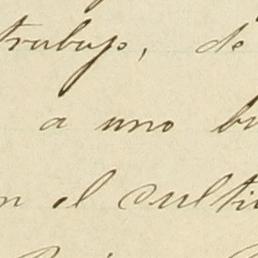 trabajo, de
a uno bu
n el culti